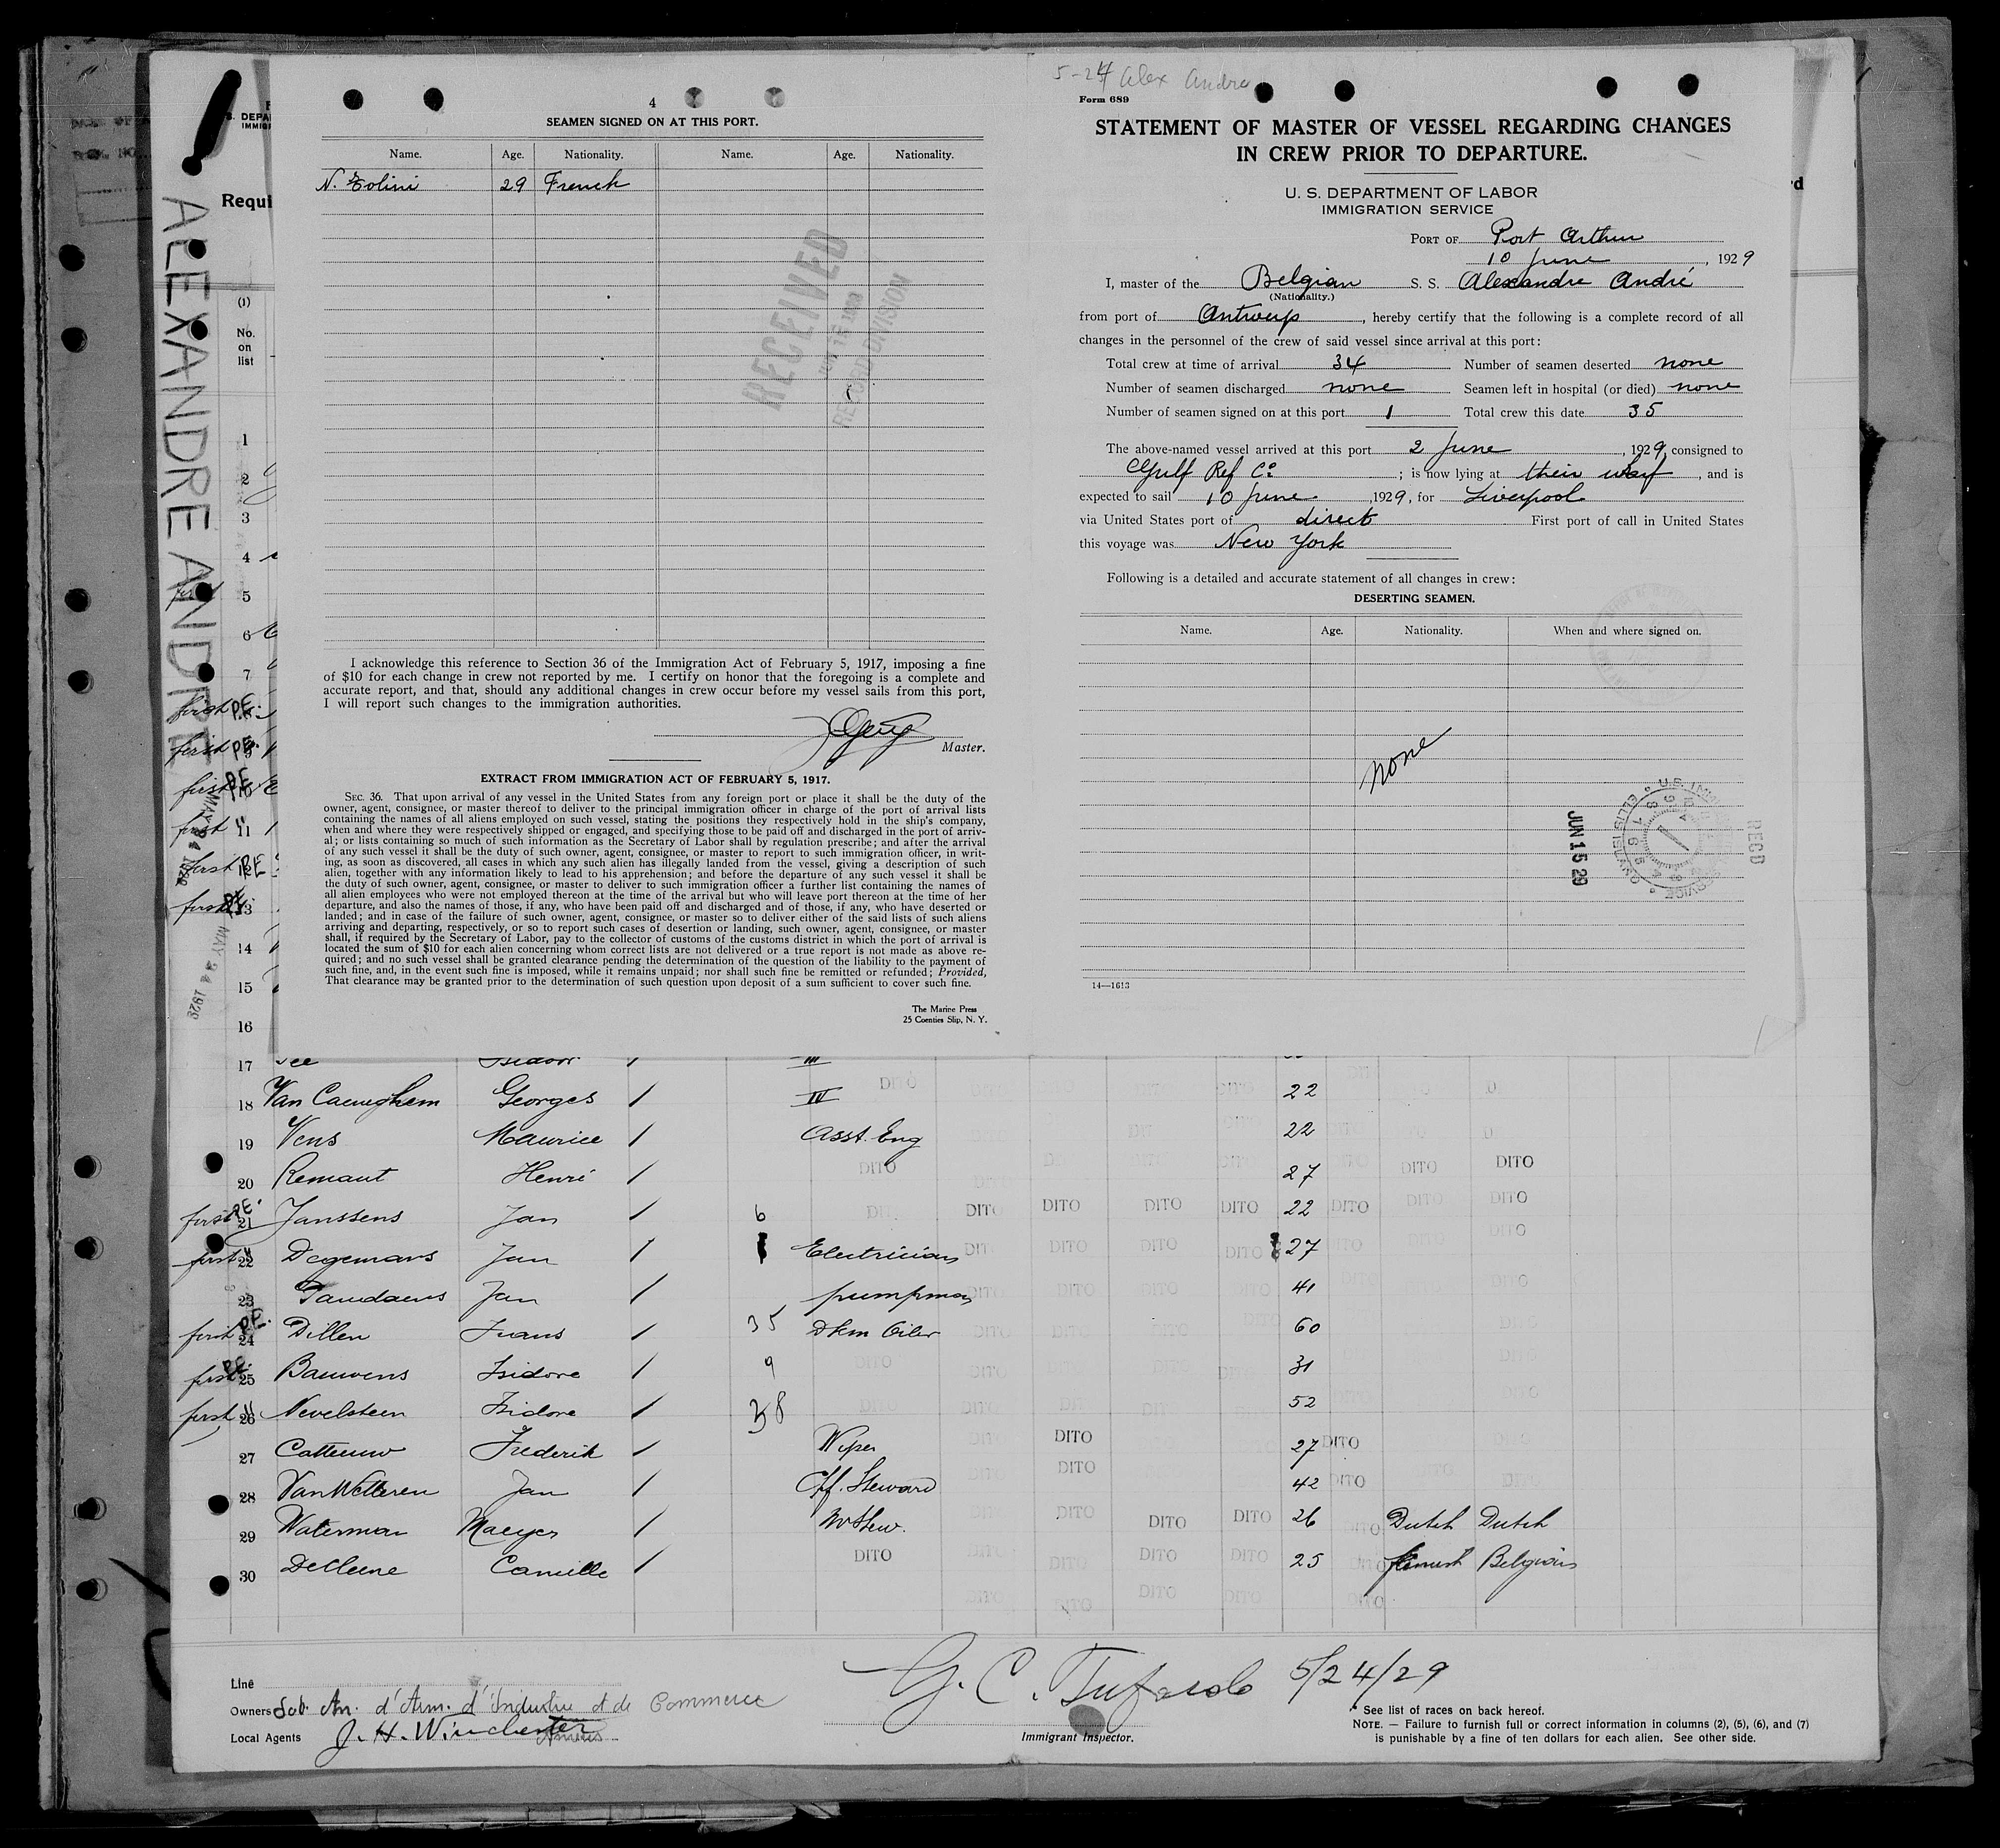 4
SEAMEN SIGNED ON AT THIS PORT.
Name. Age. Nationality. Name. Age. Nationality.
N. 29 French
RECEIVED
RECORD DIVISION
I acknowledge this reference to Section 36 of the Immigration Act of February 5, 1917, imposing a fine
of $10 for each change in crew not reported by me. I certify on honor that the foregoing is a complete and
accurate report, and that, should any additional changes in crew occur before my vessel sails from this port,
I will report such changes to the immigration authorities.
Master.
EXTRACT FROM IMMIGRATION ACT OF FEBRUARY 5, 1917.
SEC. 36. That upon arrival of any vessel in the United States from any foreign port or place it shall be the duty of the
owner, agent, consignee, or master thereof to deliver to the principal immigration officer in charge of the port of arrival lists
containing the names of all aliens employed on such vessel, stating the positions they respectively hold in the ship's company,
when and where they were respectively shipped or engaged, and specifying those to be paid off and discharged in the port of arriv-
al; or lists containing so much of such information as the Secretary of Labor shall by regulation prescribe; and after the arrival
of any such vessel it shall be the duty of such owner, agent, consignee, or master to report to such immigration officer, in writ-
ing, as soon as discovered, all cases in which any such alien has illegally landed from the vessel, giving a description of such
alien, together with any information likely to lead to his apprehension; and before the departure of any such vessel it shall be
the duty of such owner, agent, consignee, or master to deliver to such immigration officer a further list containing the names of
all alien employees who were not employed thereon at the time of the arrival but who will leave port thereon at the time of her
departure, and also the names of those, if any, who have been paid off and discharged and of those, if any, who have deserted or
landed; and in case of the failure of such owner, agent, consignee, or master so to deliver either of the said lists of such aliens
arriving and departing, respectively, or so to report such cases of desertion or landing, such owner, agent, consignee, or master
shall, if required by the Secretary of Labor, pay to the collector of customs of the customs district in which the port of arrival is
located the sum of $10 for each alien concerning whom correct lists are not delivered or a true report is not made as above re-
quired; and no such vessel shall be granted clearance pending the determination of the question of the liability to the payment of
such fine, and, in the event such fine is imposed, while it remains unpaid; nor shall such fine be remitted or refunded; Provided,
That clearance may be granted prior to the determination of such question upon deposit of a sum sufficient to cover such fine.
The Marine Press
25 Coenties Slip, N. Y.
5-24 Alex Andre
Form 689
STATEMENT OF MASTER OF VESSEL REGARDING CHANGES
IN CREW PRIOR TO DEPARTURE.
U. S. DEPARTMENT OF LABOR
IMMIGRATION SERVICE
PORT OF Port Arthur
10 June, 1929
I, master of the Belgian S. S. Alexandre André
(Nationality.)
from port of Antwerp, hereby certify that the following is a complete record of all
changes in the personnel of the crew of said vessel since arrival at this port:
Total crew at time of arrival 34 Number of seamen deserted none
Number of seamen discharged none Seamen left in hospital (or died) none
Number of seamen signed on at this port 1 Total crew this date 35
The above-named vessel arrived at this port 2 June, 1929, consigned to
Gulf Ref Co; is now lying at their warf, and is
expected to sail 10 June, 1929, for Liverpool
via United States port of direct First port of call in United States
this voyage was New York
Following is a detailed and accurate statement of all changes in crew:
DESERTING SEAMEN.
Name. Age. Nationality. When and where signed on.
none
JUN 15 29
RECD
14—1613
ALEXANDRE ANDRE
Requi
(1)
No.
on
list
1
2
3
4
5
6
7
first P.E.
first P.E. 9
first P.E. 10
first " 11
first P.E. 12
first P.E. 13
14
15
16
MAY 24 1929
MAY 24 1929
17 Isidoor III
18 Van Caeneghem Georges / IV DITO 22
19 Vens Maurice / Asst. Eng 22
20 Remaut Henri / DITO 27 DITO DITO
first P.E. 21 Janssens Jan / 6 DITO DITO DITO DITO 22 DITO DITO DITO
first " 22 Degemans Jan / Electrician DITO DITO DITO DITO 27 DITO DITO
23 Jan / pumpman DITO 41 DITO
first P.E. 24 Dillen Frans / 35 Dkm Oiler DITO 60
first P.E. 25 Bauwens Isidore / 9 DITO 31
first " 26 Nevelsteen Isidore / 38 DITO 52 DITO
27 Catteeuw Frederik / Wiper DITO 27 DITO
28 Van Wetteren Jan / Chf. Steward DITO 42 DITO
29 Waterman Maeyer / DITO DITO DITO 26 DITO Dutch Dutch
30 Camille / DITO DITO DITO DITO 25 flemish Belgian
DITO DITO DITO DITO DITO
Line
Owners Soc. An. d'Arm. d'Industrie et de Commerce
Local Agents J. H. Winchester
G. C. Tufarolo 5/24/29
Immigrant Inspector.
* See list of races on back hereof.
NOTE. — Failure to furnish full or correct information in columns (2), (5), (6), and (7)
is punishable by a fine of ten dollars for each alien. See other side.